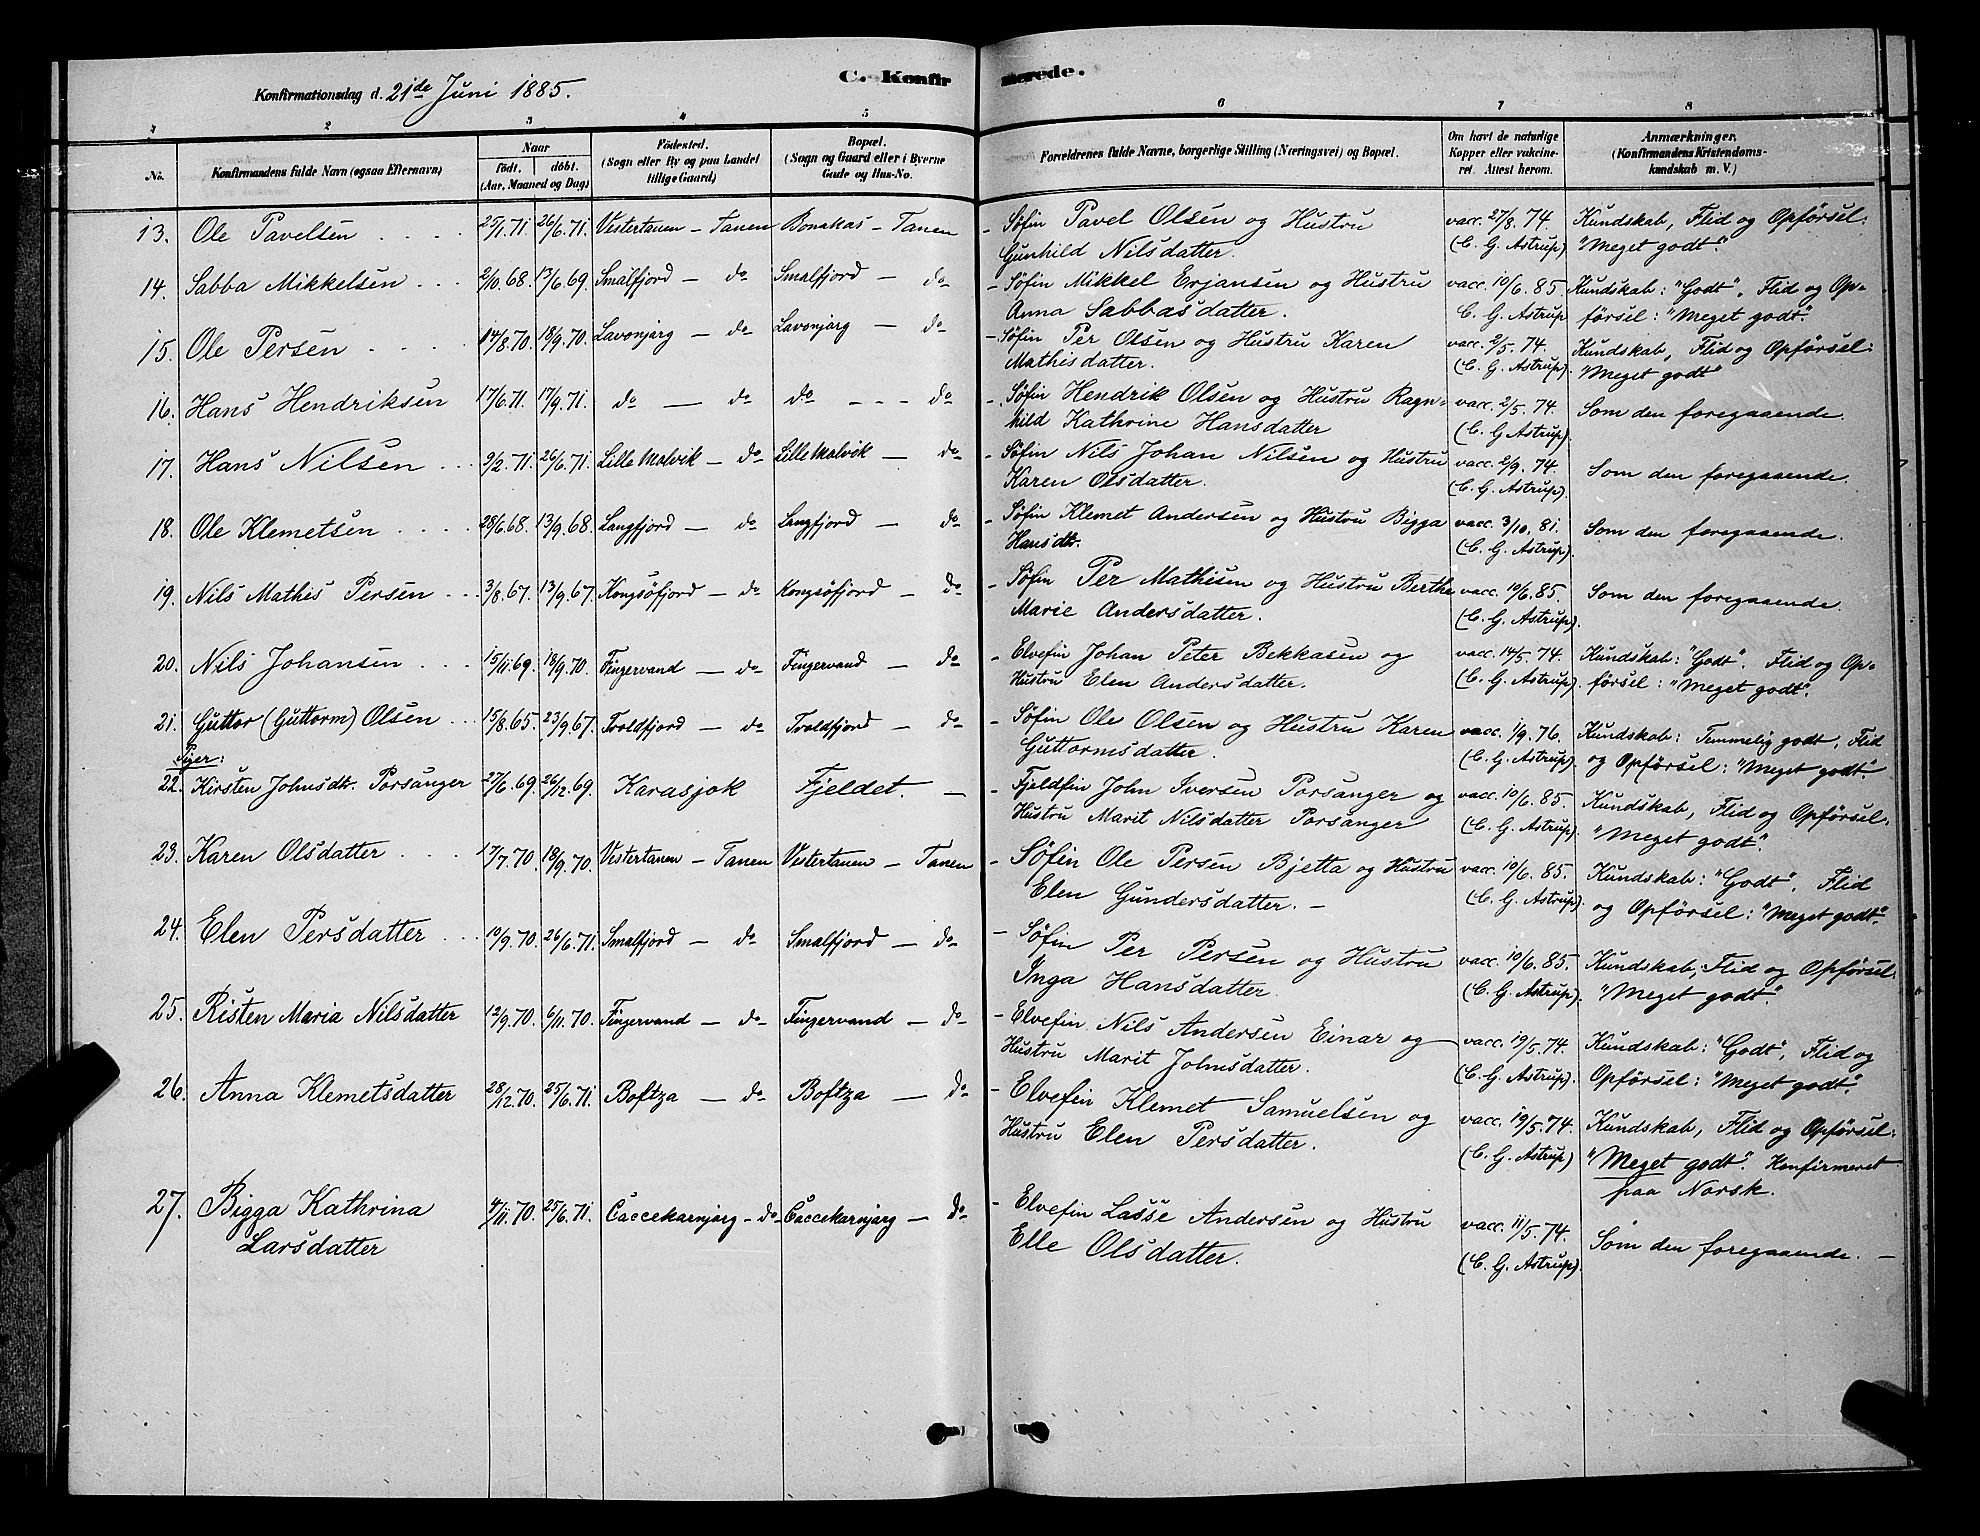 C. Konfirmerede.
Konfirmationsdag d. 21de Juni 1885.
1 2 3 4 5 6 7 8
No. Konfirmandens fulde Navn (ogsaa Efternavn) Naar født. døbt. (Aar, Maaned og Dag) Fødested. (Sogn eller By og paa Landet tillige Gaard) Bopæl. (Sogn og Gaard eller i Byerne Gade og Hus-No.) Forældrenes fulde Navne, borgerlige Stilling (Næringsvei) og Bopæl. Om havt de naturlige Kopper eller vakcineret. Attest herom. Anmærkninger. (Konfirmandens Kristendomskundskab m. V.)
13. Ole Pavelsen 25/1.71. 26/6.71. Vestertanen – Tanen Bonakas – Tanen – Søfin Pavel Olsen og Hustru vacc. 27/8.74. Kundskab, Flid og Opførsel:
Gunhild Nilsdatter. (C. G. Astrup) "Meget godt".
14. Sabba Mikkelsen 2/10.68. 13/6.69. Smalfjord – do Smalfjord – do – Søfin Mikkel Erjansen og Hustru vacc. 10/6.85 Kundskab: "Godt". Flid og Op-
Anna Sabbasdatter. C. G. Astrup førsel: "Meget godt".
15. Ole Persen 14/8.70. 18/9.70. Lavonjarg – do Lavonjarg – do – Søfin Per Olsen og Hustru Karen vacc. 2/5.74. Kundskab, Flid og Opførsel:
Mathisdatter. (C. G. Astrup). "Meget godt"
16. Hans Hendriksen 17/6.71. 17/9.71. do – do do – – – do – Søfin Hendrik Olsen og Hustru Ragn- vacc. 2/5.74. Som den foregaaende.
hild Kathrine Hansdatter (C. G. Astrup).
17. Hans Nilsen 9/2.71. 26/6.71. Lille Molvik – do Lille Molvik – do – Søfin Nils Johan Nilsen og Hustru vacc. 2/9.74. Som den foregaaende.
Karen Olsdatter. (C. G. Astrup).
18. Ole Klemetsen 28/6.68. 13/9.68. Langfjord – do Langfjord – do – Søfin Klemet Andersen og Hustru Bigga vacc. 3/10.81. Som den foregaaende.
Hansdt. (C. G. Astrup).
19. Nils Mathis Persen 3/8.67. 13/9.67. Kongsøfjord – do Kongsøfjord – do – Søfin Per Mathisen og Hustru Berthe vacc. 10/6.85. Som den foregaaende.
Marie Andersdatter. (C. G. Astrup).
20. Nils Johansen 15/11.69. 18/9.70. Fingervand – do Fingervand – do – Elvefin Johan Peter Bekkasen og vacc. 14/5.74. Kundskab: "Godt". Flid og Op-
Hustru Elen Andersdatter. (C. G. Astrup). førsel: "Meget godt".
21. Guttor (Guttorm) Olsen 15/8.65. 23/9.67. Troldfjord – do Troldfjord – do – Søfin Ole Olsen og Hustru Karen vacc. 1/9.76. Kundskab: Temmelig godt, Flid
Guttormsdatter. (C. G. Astrup). og Opførsel: "Meget godt"
Piger:
22. Kirsten Johnsdt. Porsanger 27/6.69. 26/12.69. Karasjok Fjeldet. – – Fjeldfin John Iversen Porsanger og vacc. 10/6.85. Kundskab, Flid og Opførsel:
Hustru Marit Nilsdatter Porsanger (C. G. Astrup). "Meget godt".
23. Karen Olsdatter 17/7.70. 18/9.70. Vestertanen – Tanen Vestertanen – Tanen – Søfin Ole Persen Bjetta og Hustru vacc. 10/6.85. Kundskab: "Godt". Flid
Elen Gundersdatter. – (C. G. Astrup). og Opførsel: "Meget godt".
24. Elen Persdatter 10/9.70. 26/6.71. Smalfjord – do Smalfjord – do – Søfin Per Persen og Hustru vacc. 10/6.85. Kundskab, Flid og Opførsel:
Inga Hansdatter. (C. G. Astrup). "Meget godt".
25. Risten Maria Nilsdatter 12/9.70. 6/11.70. Fingervand – do Fingervand – do – Elvefin Nils Andersen Einar og vacc. 19/5.74. Kundskab: "Godt", Flid og
Hustru Marit Johnsdatter. (C. G. Astrup) Opførsel: "Meget godt".
26. Anna Klemetsdatter 28/12.70. 25/6.71. Boftza – do Boftza – do – Elvefin Klemet Samuelsen og vacc. 19/5.74. Kundskab, Flid og Opførsel:
Hustru Elen Persdatter. (C. G. Astrup) "Meget godt". Konfirmeret
paa Norsk.
27. Bigga Kathrina 4/11.70. 25/6.71. Caccekarnjarg – do Caccekarnjarg – do – Elvefin Lasse Andersen og Hustru vacc. 11/5.74. Som den foregaaende. –
Larsdatter Elle Olsdatter. (C. G. Astrup).